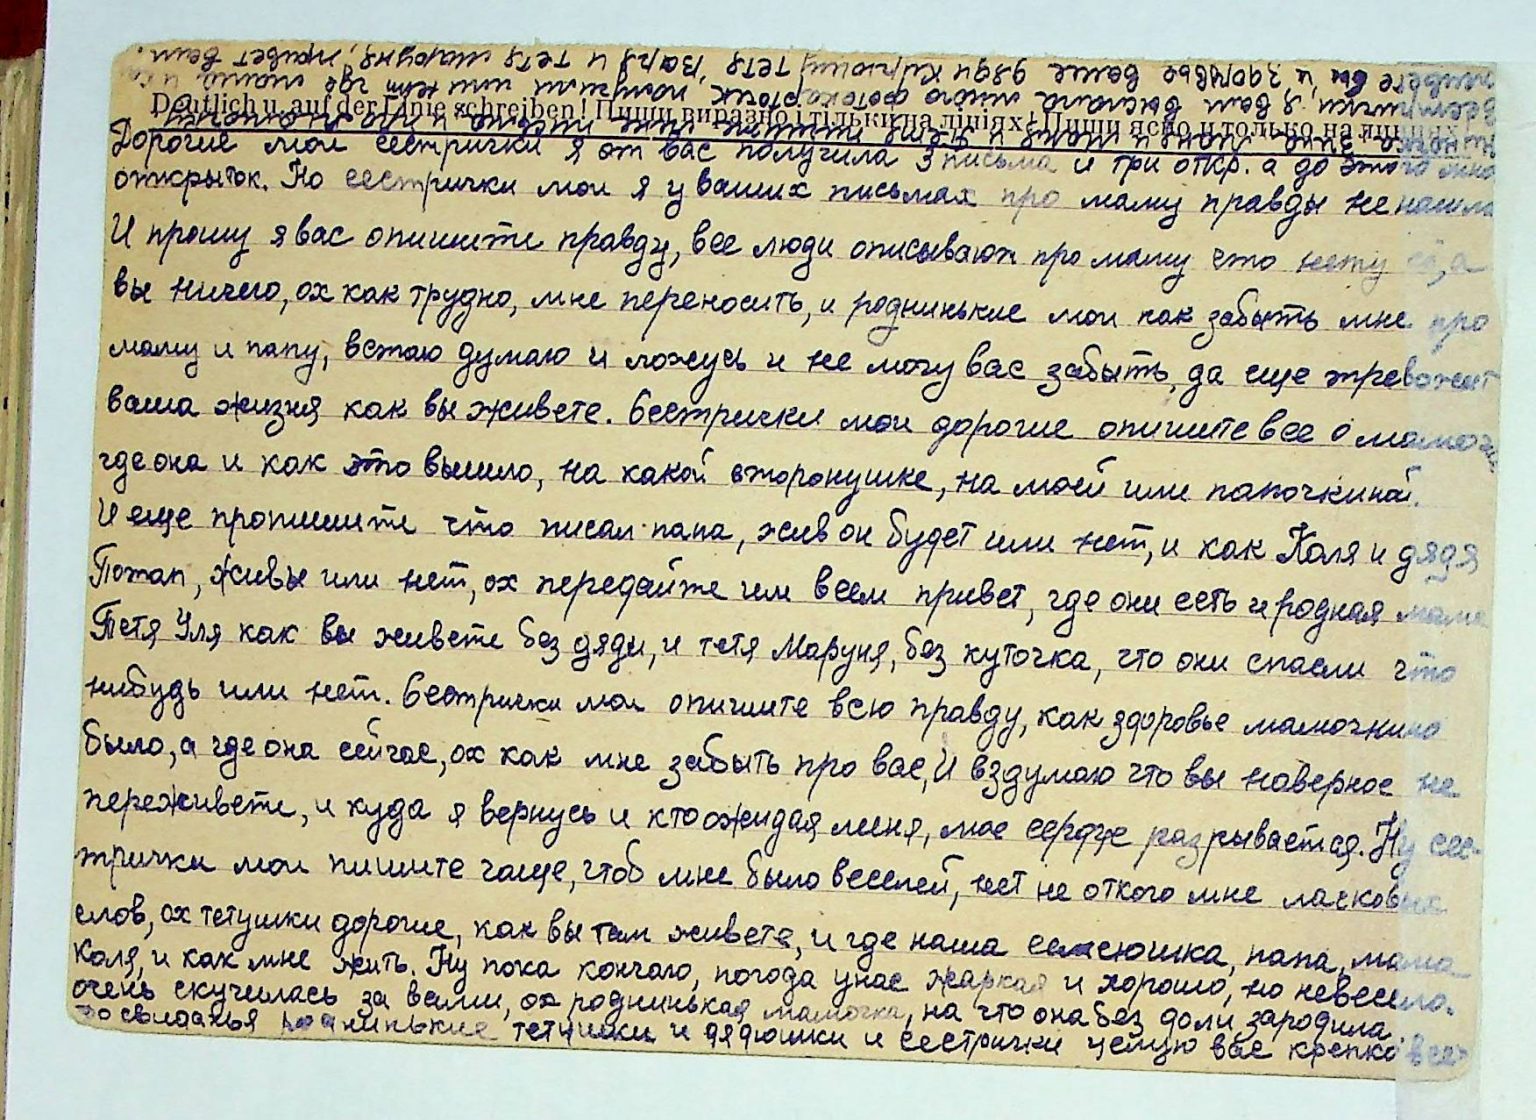 Deutlich u. auf der Linie schreiben! Пиши виразно і тільки на лініях! Пиши ясно и только на линиях!
Дорогие мои сестрички я от вас получила 3 письма и три откр. а до этого мно
открыток. Но сестрички мои я у ваших письмах про маму правды не нашла
И прошу я вас опишите правду, все люди описывают про маму что нету её, а
вы ничего, ох как трудно, мне переносить, и роднинькие мои как забыть мне про
маму и папу, встаю думаю и ложусь и не могу вас забыть, да еще тревожит
ваша жизня как вы живете. Сестрички мои дорогие опишите все о мамочки
где она и как это вышло, на какой сторонушке, на моей или папочкиной.
И еще пропишите что писал папа, жив он будет или нет, и как Коля и дядя
Потап, живы или нет, ох передайте им всем привет, где они есть и родная мама
Тетя Уля как вы живете без дяди, и тетя Маруня, без куточка, что они спасли что
нибудь или нет. Сестрички мои опишите всю правду, как здоровье мамочкино
было, а где она сейчас, ох как мне забыть про вас, И вздумаю что вы наверное не
переживете, и куда я вернусь и кто ожидая меня, мое сердце разрывается. Ну сес-
трички мои пишите чаще, чтоб мне было веселей, нет не откого мне ласковых
слов, ох тетушки дорогие, как вы там живете, и где наша семеюшка, папа, мама
Коля, и как мне жить. Ну пока кончаю, погода унас жаркая и хорошо, но невесело.
очень скучилась за вами, ох роднинькая мамочка, на что она без доли зародила
до свиданья роднинькие тетушки и дядюшки и сестрички целую вас крепко всех
сестрички я вам выслала много фотокарточок, получили или нет
живете вы и здоровье ваше дядя тетя Варя и тетя Маруня, привет вам.